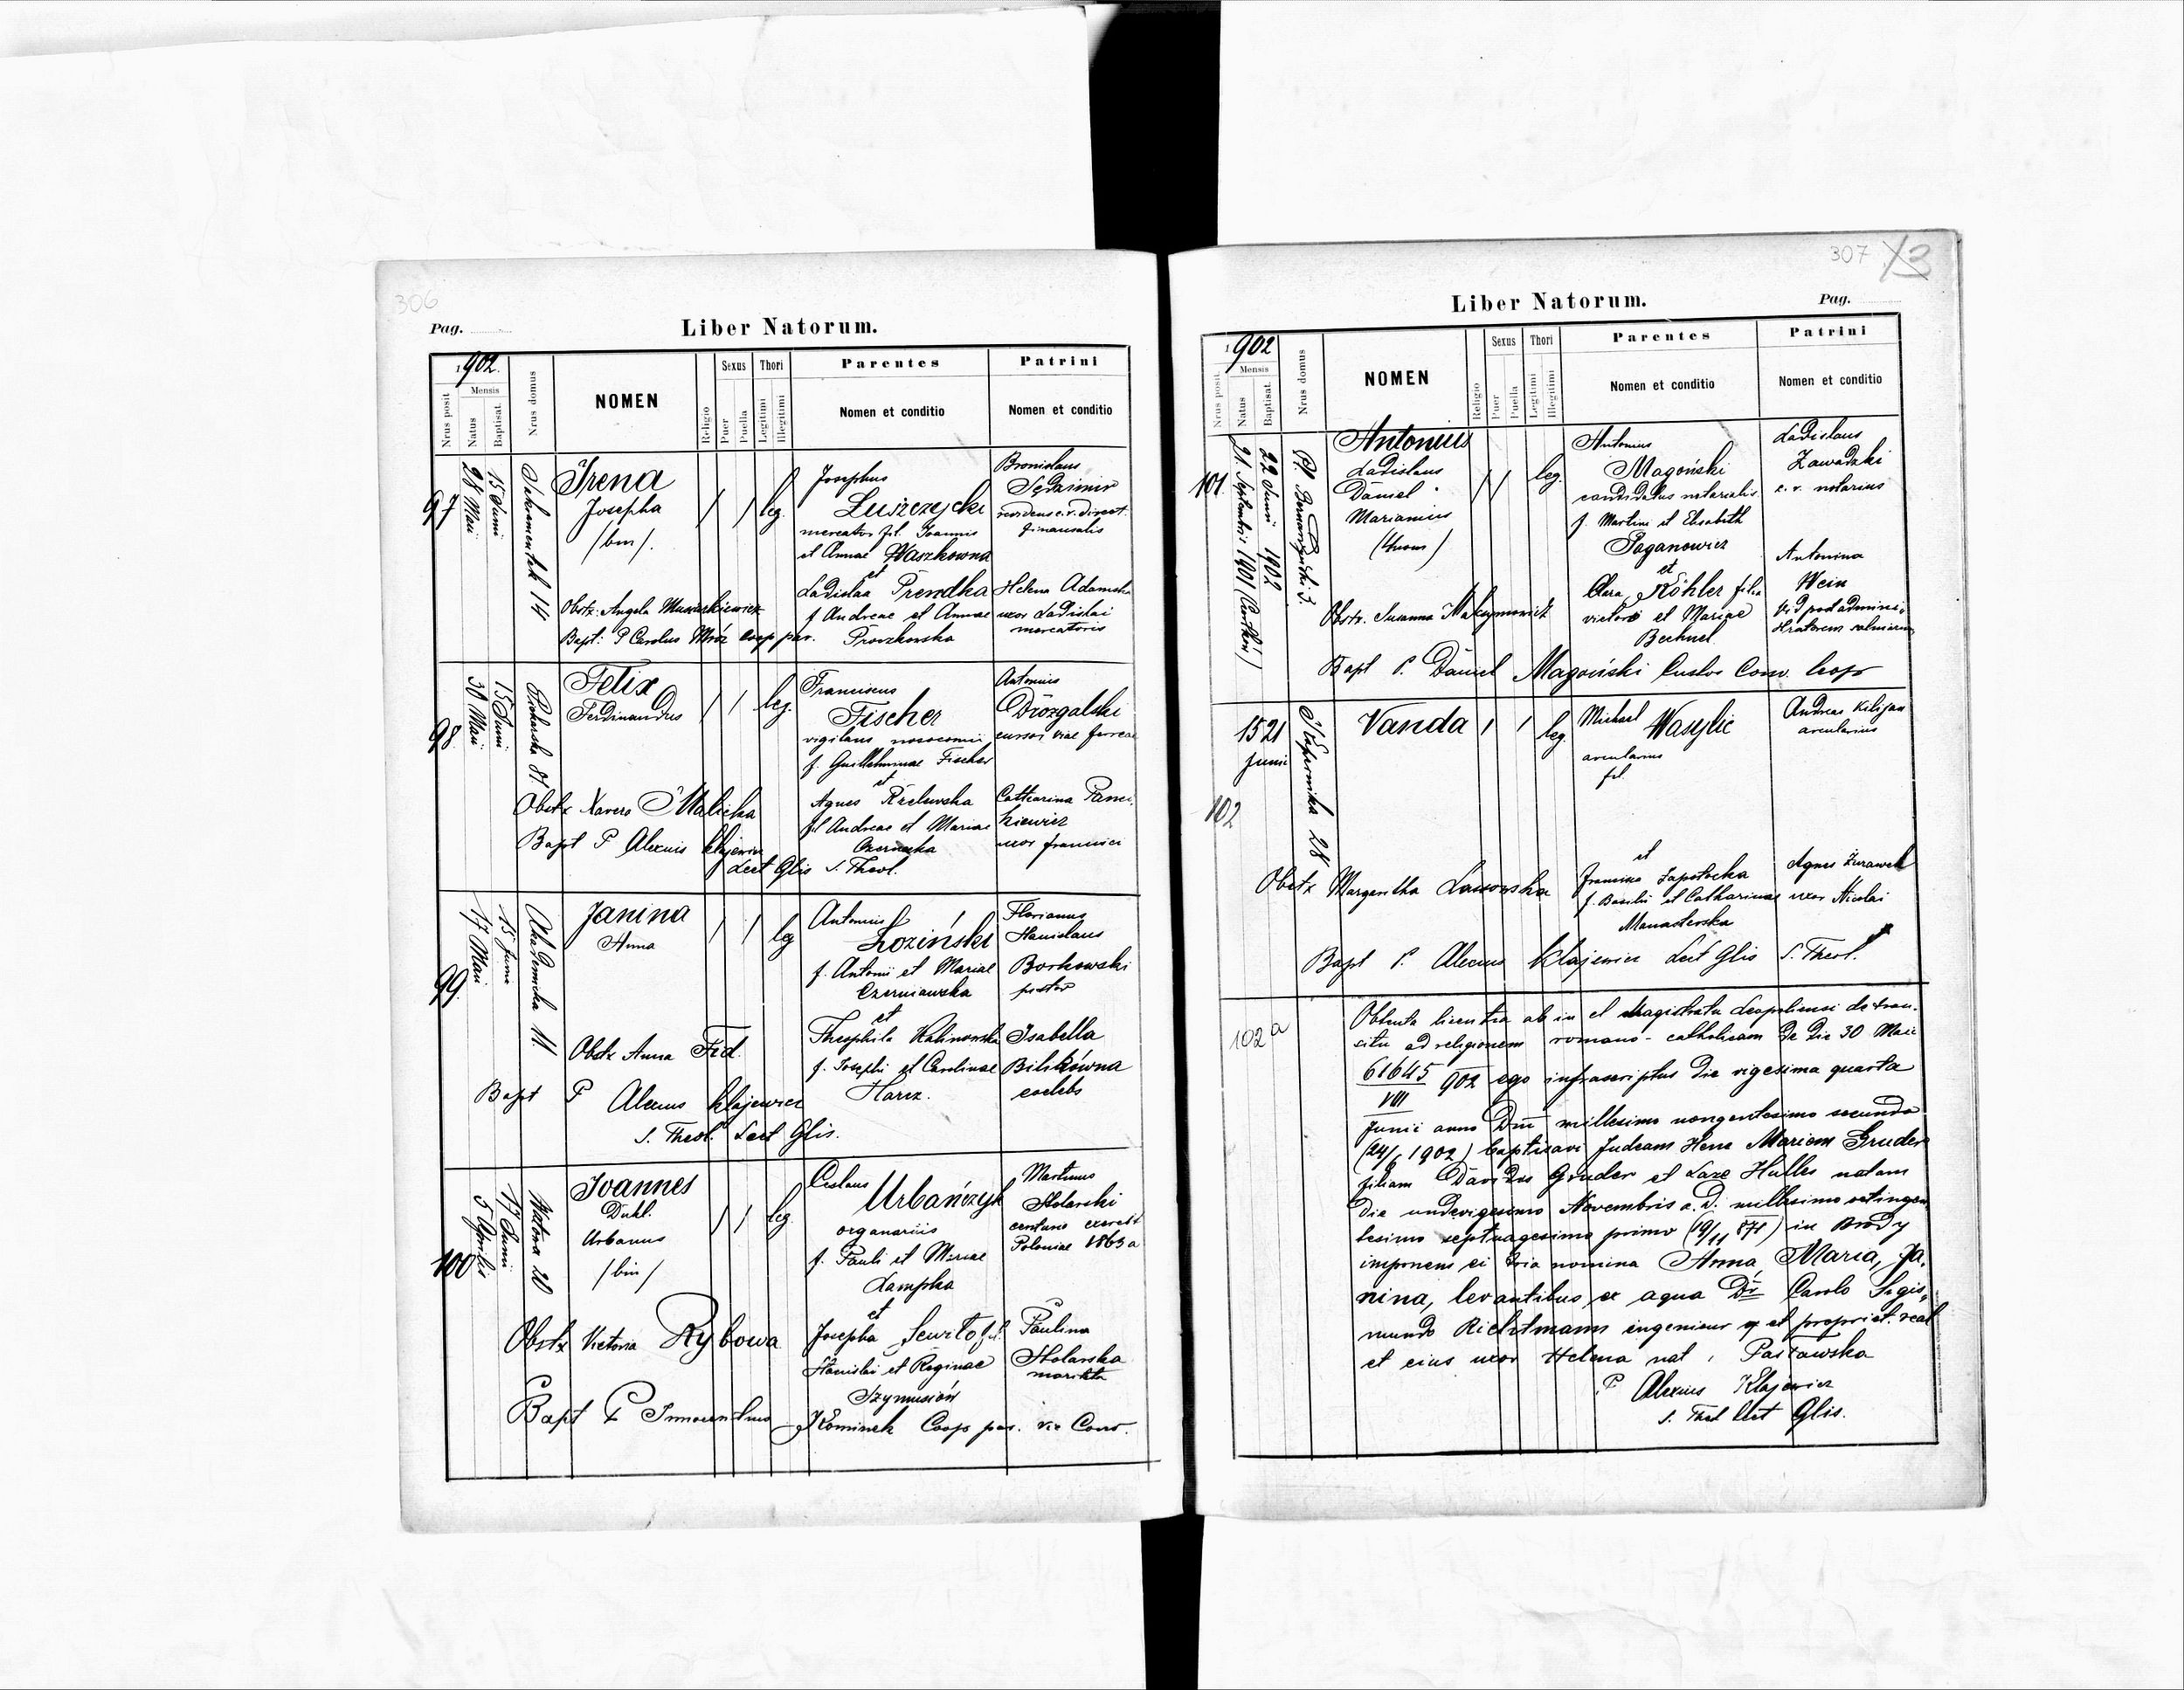 306
Pag.
Liber Natorum.
1902.
Nrus posit
Mensis
Natus
Baptisat.
Nrus domus
NOMEN
Religio
Sexus
Puer
Puella
Thori
Legitimi
Illegitimi
Parentes
Nomen et conditio
Patrini
Nomen et conditio
97
28 Maii
15 Junii
Sakramentek 14
Irena
Josepha
/bin/.
/ / leg.
Obstx: Angela
Bapt: P Carolus Mróz coop par.
Josephus
Łuszczycki
mercator fil. Joannis
et Annae Waszkowna
et
Ladislaa Prendka
f Andreae et Annae
Prozkowska
Bronislaus
Sędzimir
c.r. direct.
finansalis
Helena Adamska
uxor Ladislai
mercatoris
98
30 Maii
15 Junii
Piekarska 81
Felix
Ferdinandus
/ / leg.
Obstx Xavera
Bapt P Alexius Klajewicz
Lect Glis S. Theol.
Franciscus
Fischer
vigilans nosocomii
f. Guilhelminae Fischer
et
Agnes
fil Andreae et Mariae
Antonius
Drozgalski
cursor viae ferreae
Catharina
kiewicz
uxor francisci
99
17 Maii
15 Junii
Akademicka 11
Janina
Anna
/ / leg
Obstx Anna Fid.
Bapt P Alexius Klajewicz
S. Theol. Lect Glis.
Antonius
Łoziński
f. Antonii et Mariae
Czerniawska
et
Theophila Kalinowska
f. Josephi et Carolinae
Harz.
Florianus
Stanislaus
Borkowski
pistor
Isabella
Bilikówna
coelebs
100
5 Aprilis
17 Junii
Watowa 20
Joannes
Dukl.
Urbanus
/bin/
/ / leg.
Obstx Victoria Rybowa
Bapt P Innocentius
J Kominek Coop par. Conv.
Ceslaus
Urbańczyk
organariis
f. Pauli et Mariae
Lampka
et
Josepha f.
Stanislai et Reginae
Szymusión
Martinus
Stolarski
Poloniae 1863 a
Paulina
Stolarska
marita
307
Liber Natorum.
Pag.
1902
Nrus posit
Mensis
Natus
Baptisat.
Nrus domus
NOMEN
Religio
Sexus
Puer
Puella
Thori
Legitimi
Illegitimi
Parentes
Nomen et conditio
Patrini
Nomen et conditio
101
21 Septembris 1901
22 Junii 1902
Pl. Bernardyński 3.
Antonius
Ladislaus
Daniel
Marianus
/ / leg.
Obstx. Susanna Maksymowicz
Bapt P. Daniel Magoński Custos Conv. Leop
Antonius
Magoński
candidatus notarialis
f. Martini et Elisabeth
Paganowicz
et
Clara Köhler filia
victoris et Mariae
Bechnel
Ladislaus
Zawadzki
c. r. notarius
Antonina
Wein
102
15 21
Junii
28
Vanda / / leg.
Obstx Margaretha
Bapt P. Alexius Klajewicz Lect Glis S. Theol.
Michael Wasylic
arcularius
fil
et
Francisca Zapotocka
f. Basilii et Catharinae
Manasterska
Andreas Kilijan
arcularius
Agnes Żurawel
uxor Nicolai
102 a
Obtenta licentia ab in cl Magistratu Leopoliensi de tran-
situ ad religionem romano-catholicam de die 30 Maii
61645/VIII 902 ego infrascriptus die vigesima quarta
Junii anno Dni millesimo nongentesimo secundo
(24/6 1902) baptisavi Judeam Hene Mariem Gruder
filiam Davidis Gruder et Laze Hulles natam
die undevigesimo Novembris a. D. millesimo octingen
tesimo septuagesimo primo (19/11 871) in Brody
imponens ei tria nomina Anna, Maria, Ja-
nina, levantibus ex aqua Dr Carolo Sigis-
mundo Richtmann ingenieur et propriet. real
et eius uxor Helena nat. Pastawska
P Alexius Klajewicz
S. Theol Lect Glis.